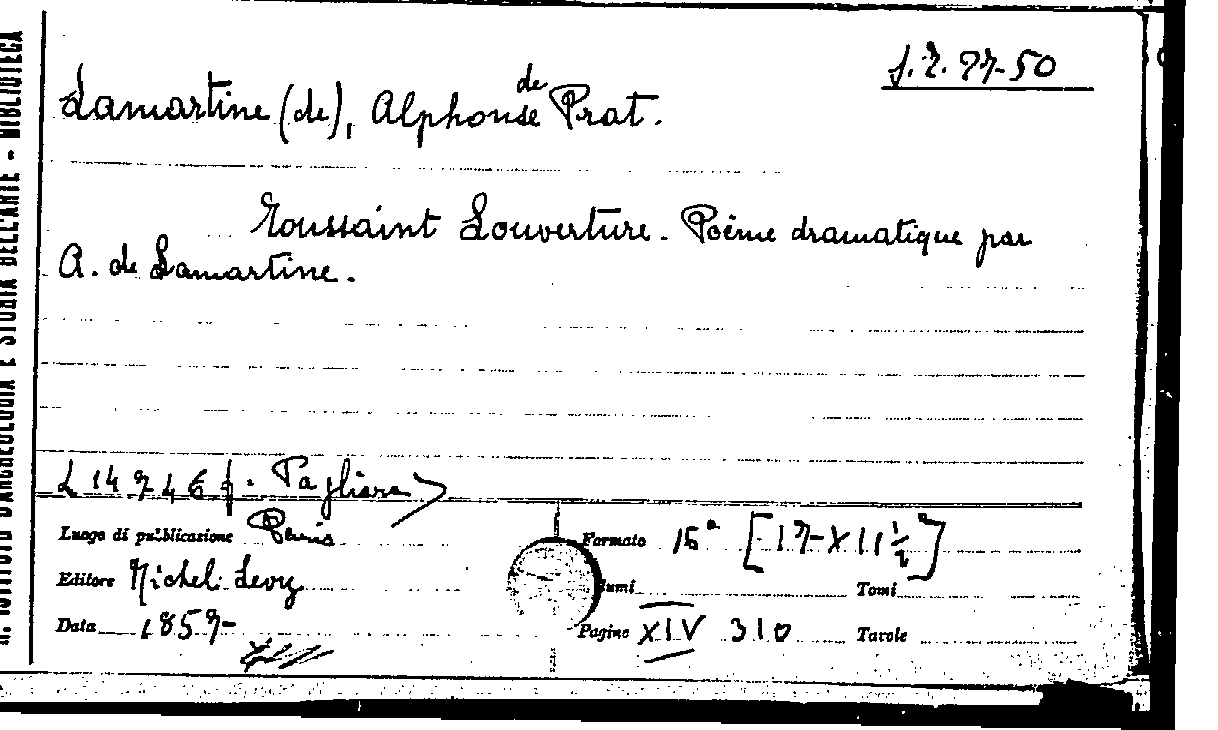 R. ISTITUTO D'ARCHEOLOGIA E STORIA DELL'ARTE - BIBLIOTECA
Lamartine (de), Alphonse de Prat.
Toussaint Louverture. Poème dramatique par
A. de Lamartine.
Pagliara
Luogo di pubblicazione Paris
Formato 16° [17 X 11 1/2]
Editore Michel Levy
Volumi
Tomi
Data 1857
Pagine XIV 310
Tavole